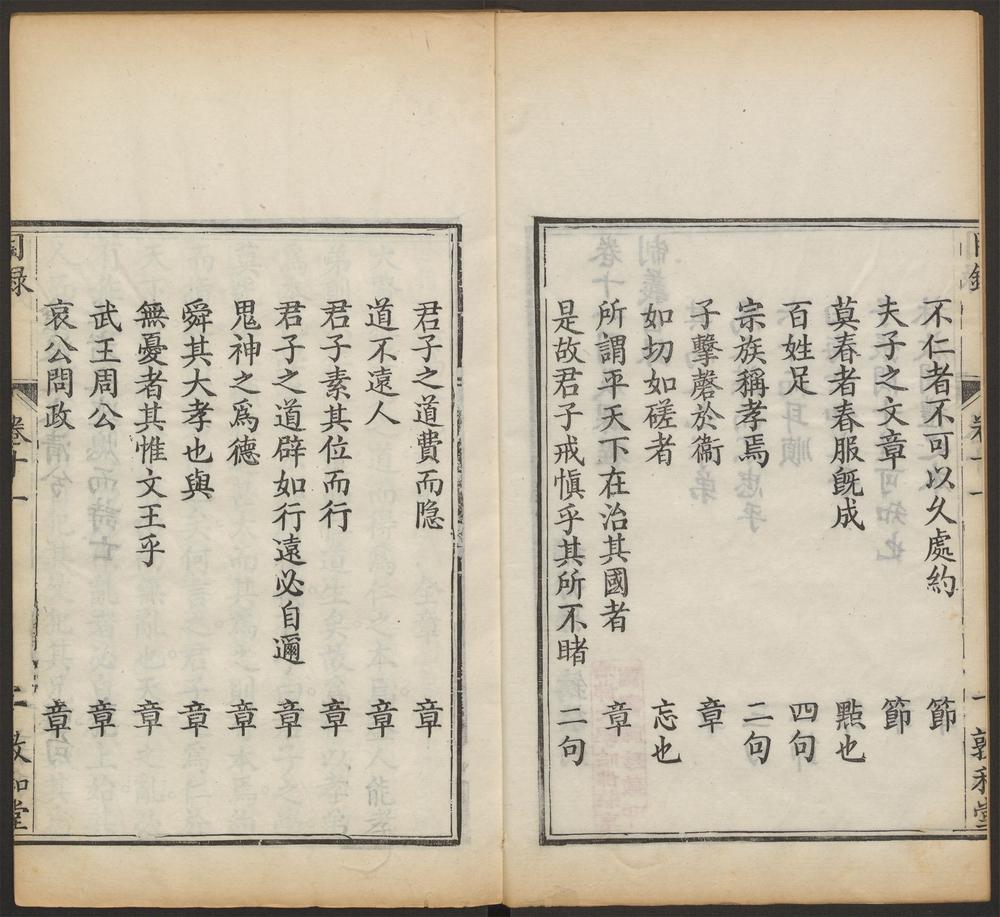 目錄 卷十一 一 敦和堂
不仁者不可以久處約 節
夫子之文章 節
莫春者春服旣成 點也
百姓足 四句
宗族稱孝焉 二句
子擊磬於衞 章
如切如磋者 忘也
所謂平天下在治其國者 章
是故君子戒愼乎其所不睹 二句
君子之道費而隐 章
道不遠人 章
君子素其位而行 章
君子之道辟如行遠必自邇 章
鬼神之爲德 章
舜其大孝也與 章
無憂者其惟文王乎 章
武王周公 章
哀公問政 章
目録 卷十一 二 敦和堂